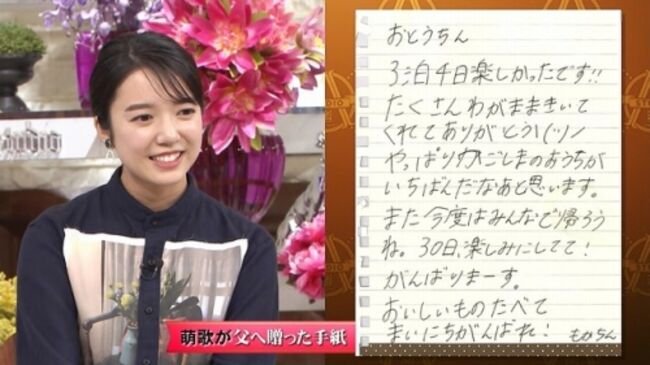 おとうちん
3泊4日楽しかったです!!
たくさんわがままきいて
くれてありがとう\(ツ)ノ
やっぱりかごしまのおうちが
いちばんだなあと思います。
また今度はみんなで帰ろう
ね。30日、楽しみにしてて!
がんばりまーす。
おいしいものたべて
まいにちがんばれ! もかちん
萌歌が父へ贈った手紙